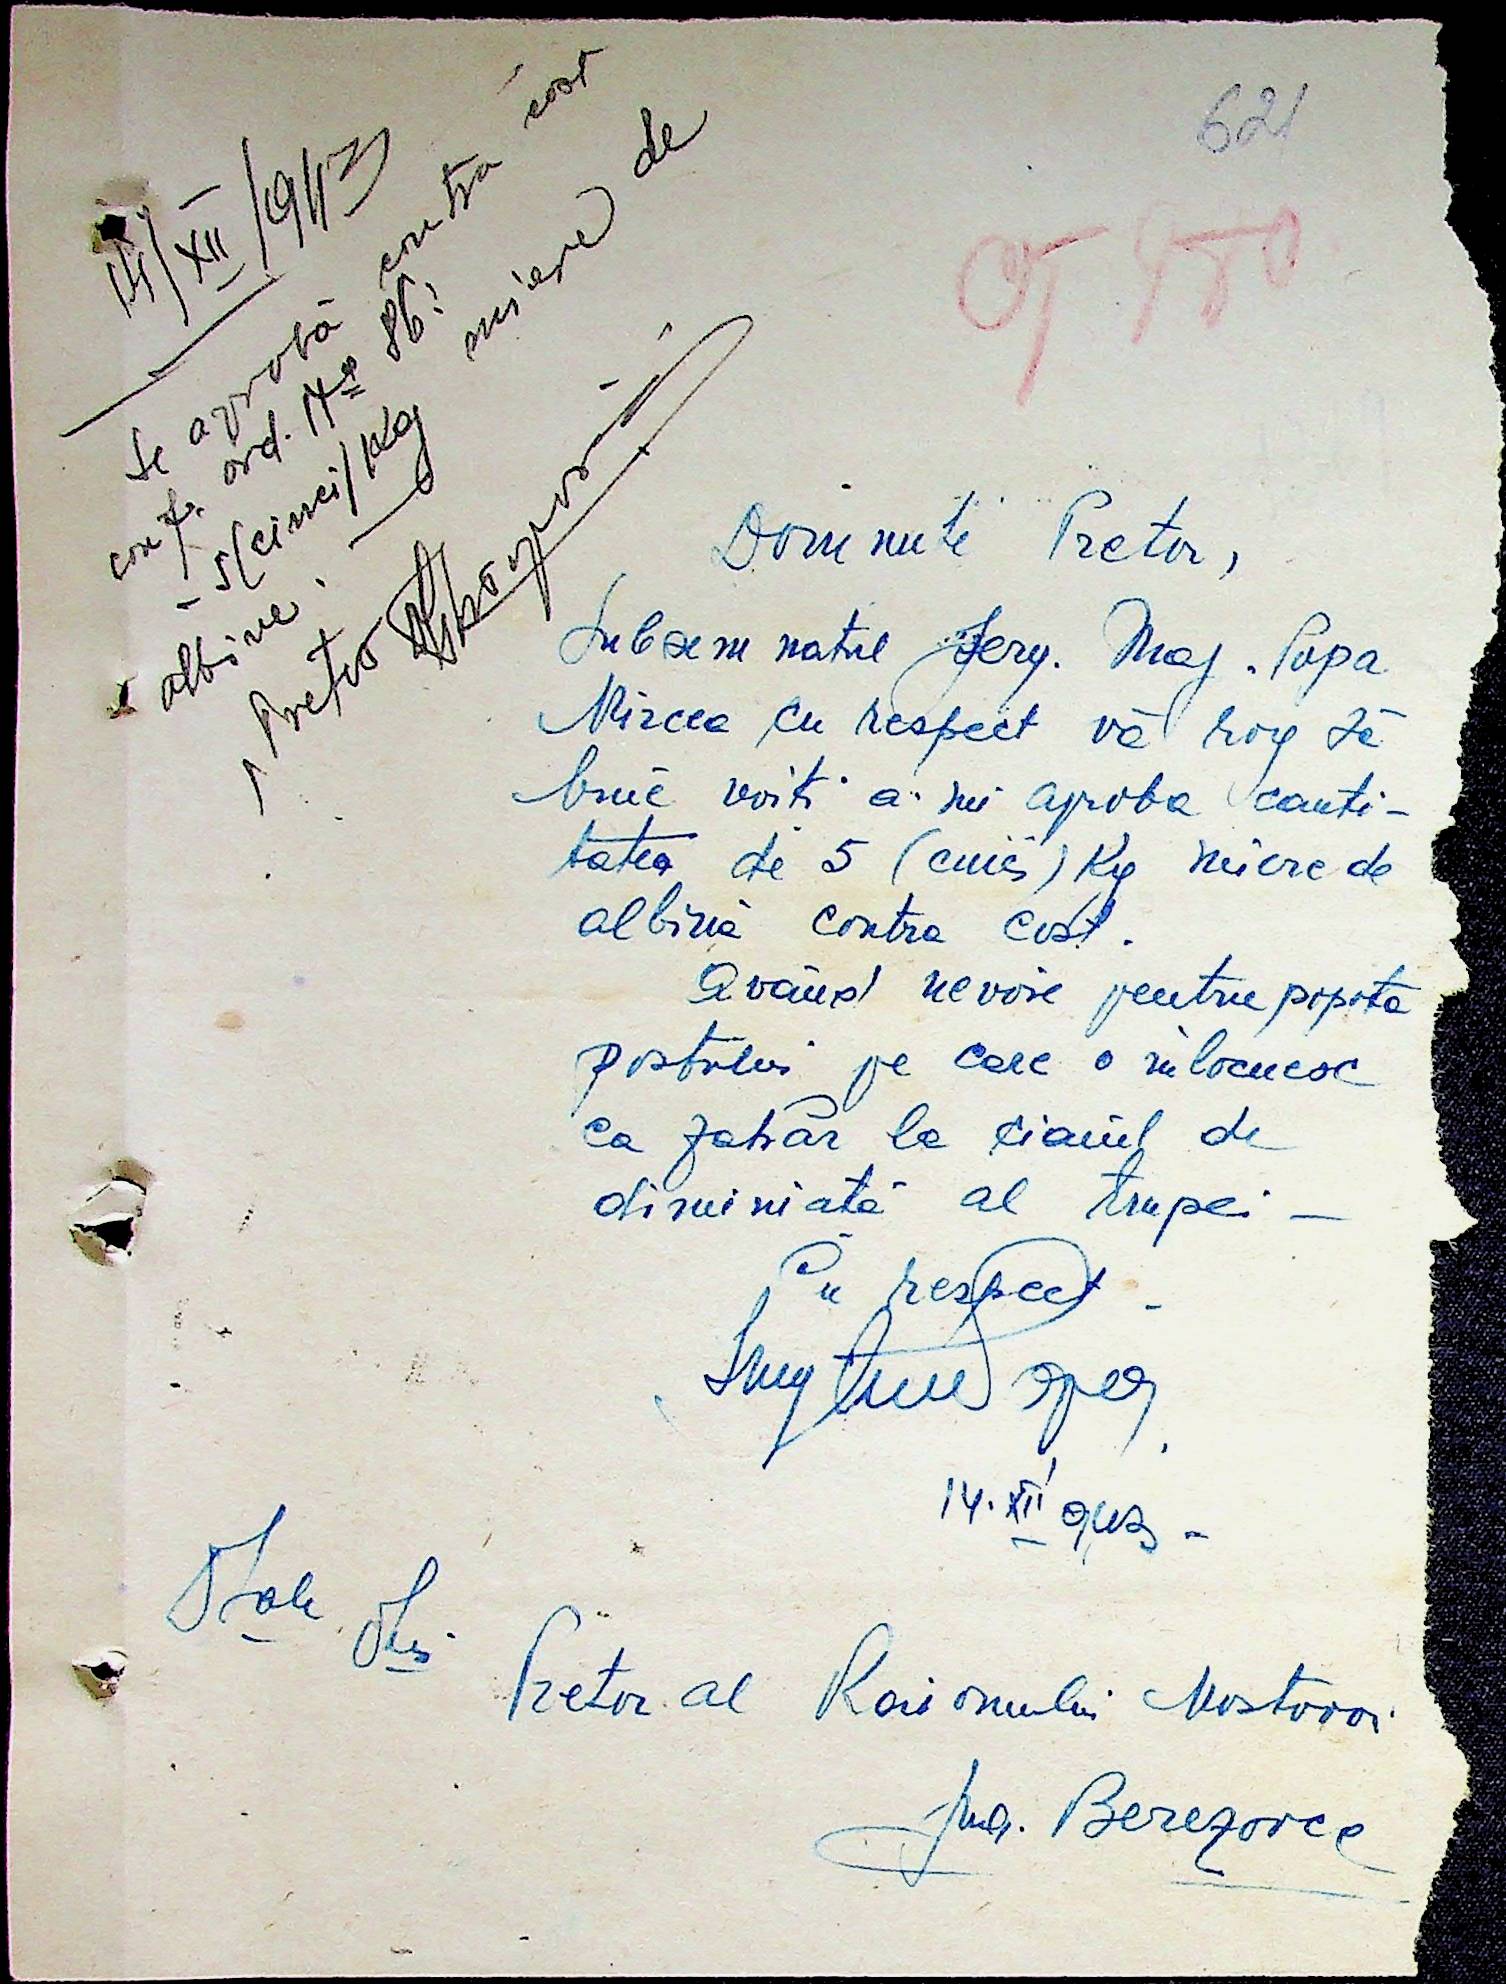 621
14/XII/1943
Se aprobă contra cost
conf. ord. No 86:
- 5 (cinci) Kg miere de
albine.
Pretor
Domnule Pretor,
Subsemnatul Serg. Maj. Popa
Mircea cu respect vă rog să
bine voiti a-mi aproba canti-
tatea de 5 (cinci) Kg miere de
albină contra cost.
Având nevoie pentru popota
postului pe care o inlocuesc
ca zahăr la ciaiul de
diminiată al trupei -
Cu respect -
14.XII 943 -
D-sale D-lui
Pretor al Raionului Mostovoi
Jud. Berezovca